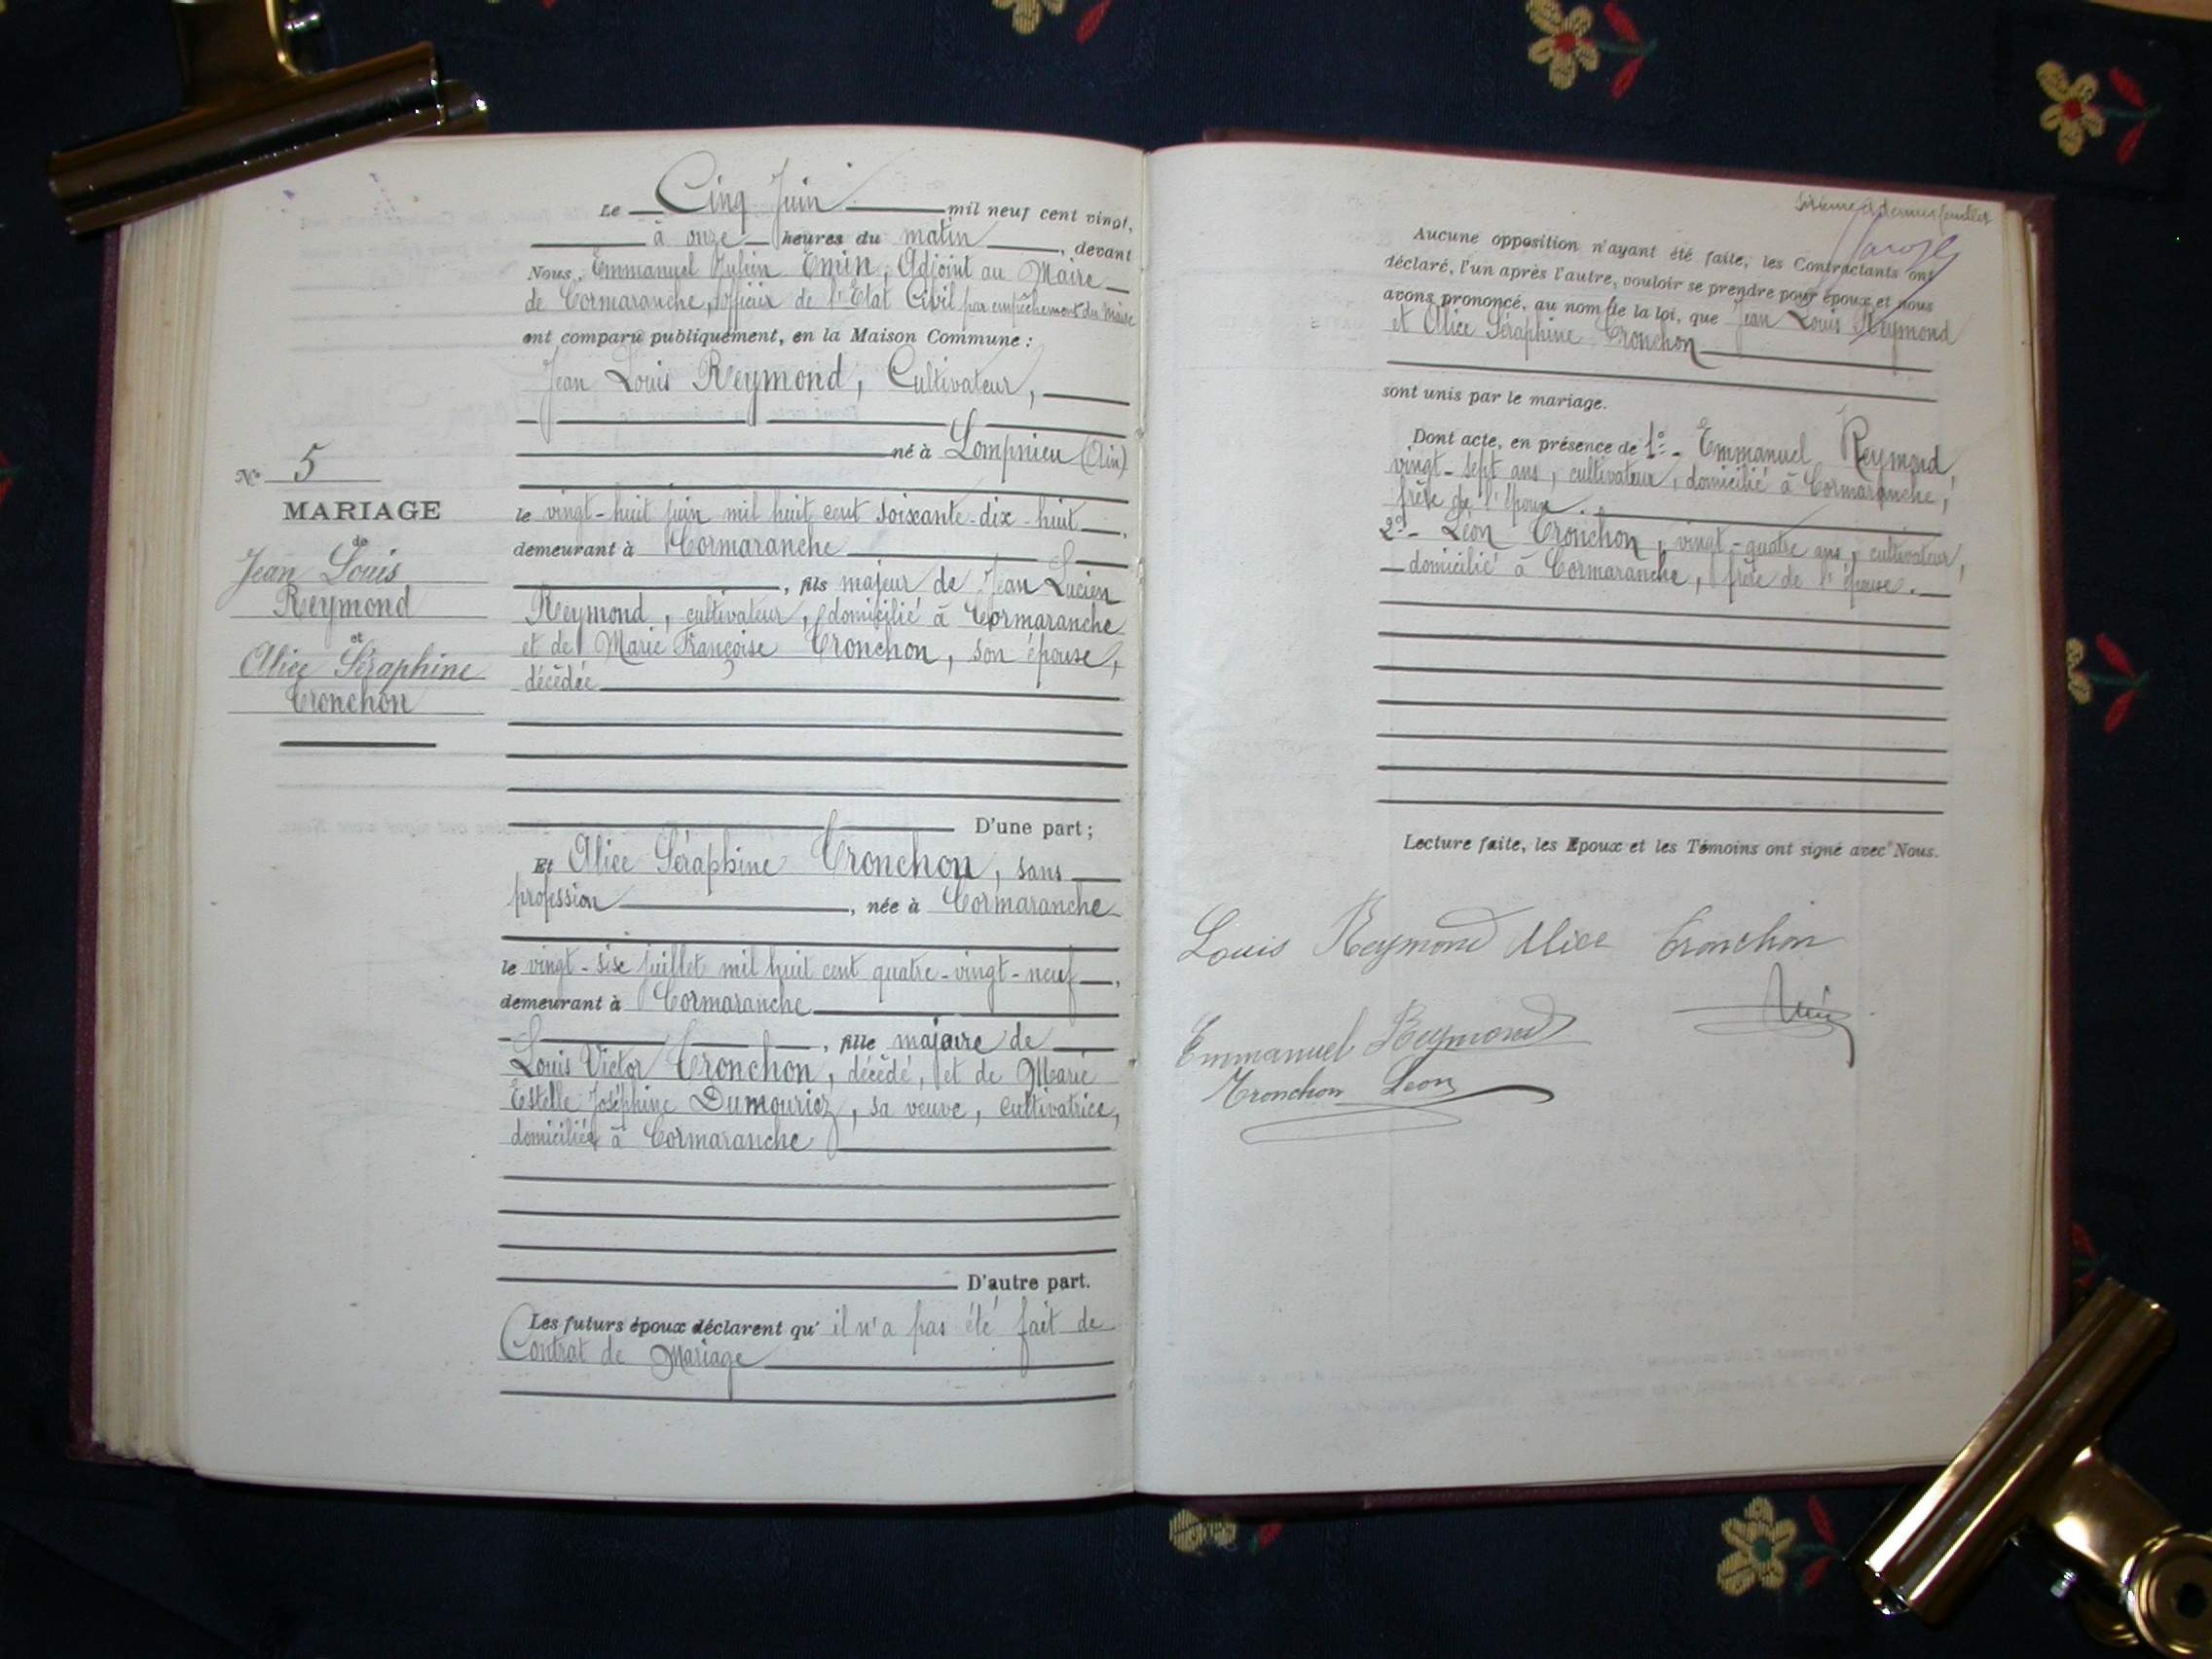 Le Cinq Juin mil neuf cent vingt,
à onze heures du matin, devant
Nous, Emmanuel Julien Emin, Adjoint au Maire
de Cormaranche, Officier de l'Etat Civil par empêchement du Maire
ont comparu publiquement, en la Maison Commune :
Jean Louis Reymond, Cultivateur,
né à Lompnieu (Ain)
le vingt-huit juin mil huit cent soixante-dix-huit,
demeurant à Cormaranche
, fils majeur de Jean Lucien
Reymond, cultivateur, domicilié à Cormaranche
et de Marie Françoise Tronchon, son épouse,
décédée
D'une part ;
Et Alice Séraphine Tronchon, sans
profession, née à Cormaranche
le vingt-six juillet mil huit cent quatre-vingt-neuf,
demeurant à Cormaranche
, fille majeure de
Louis Victor Tronchon, décédé, et de Marie
Estelle Joséphine Dumouriez, sa veuve, cultivatrice,
domiciliée à Cormaranche
D'autre part.
Les futurs époux déclarent qu'il n'a pas été fait de
Contrat de Mariage
No 5
MARIAGE
de
Jean Louis
Reymond
et
Alice Séraphine
Tronchon
Sixième et dernier feuillet
Aucune opposition n'ayant été faite, les Contractants ont
déclaré, l'un après l'autre, vouloir se prendre pour époux et nous
avons prononcé, au nom de la loi, que Jean Louis Reymond
et Alice Séraphine Tronchon
sont unis par le mariage.
Dont acte, en présence de 1o- Emmanuel Reymond,
vingt-sept ans, cultivateur, domicilié à Cormaranche,
frère de l'époux.
2o- Léon Tronchon, vingt-quatre ans, cultivateur,
domicilié à Cormaranche, frère de l'épouse.
Lecture faite, les Epoux et les Témoins ont signé avec Nous.
Louis Reymond Alice Tronchon
Emmanuel Reymond
Tronchon Leon